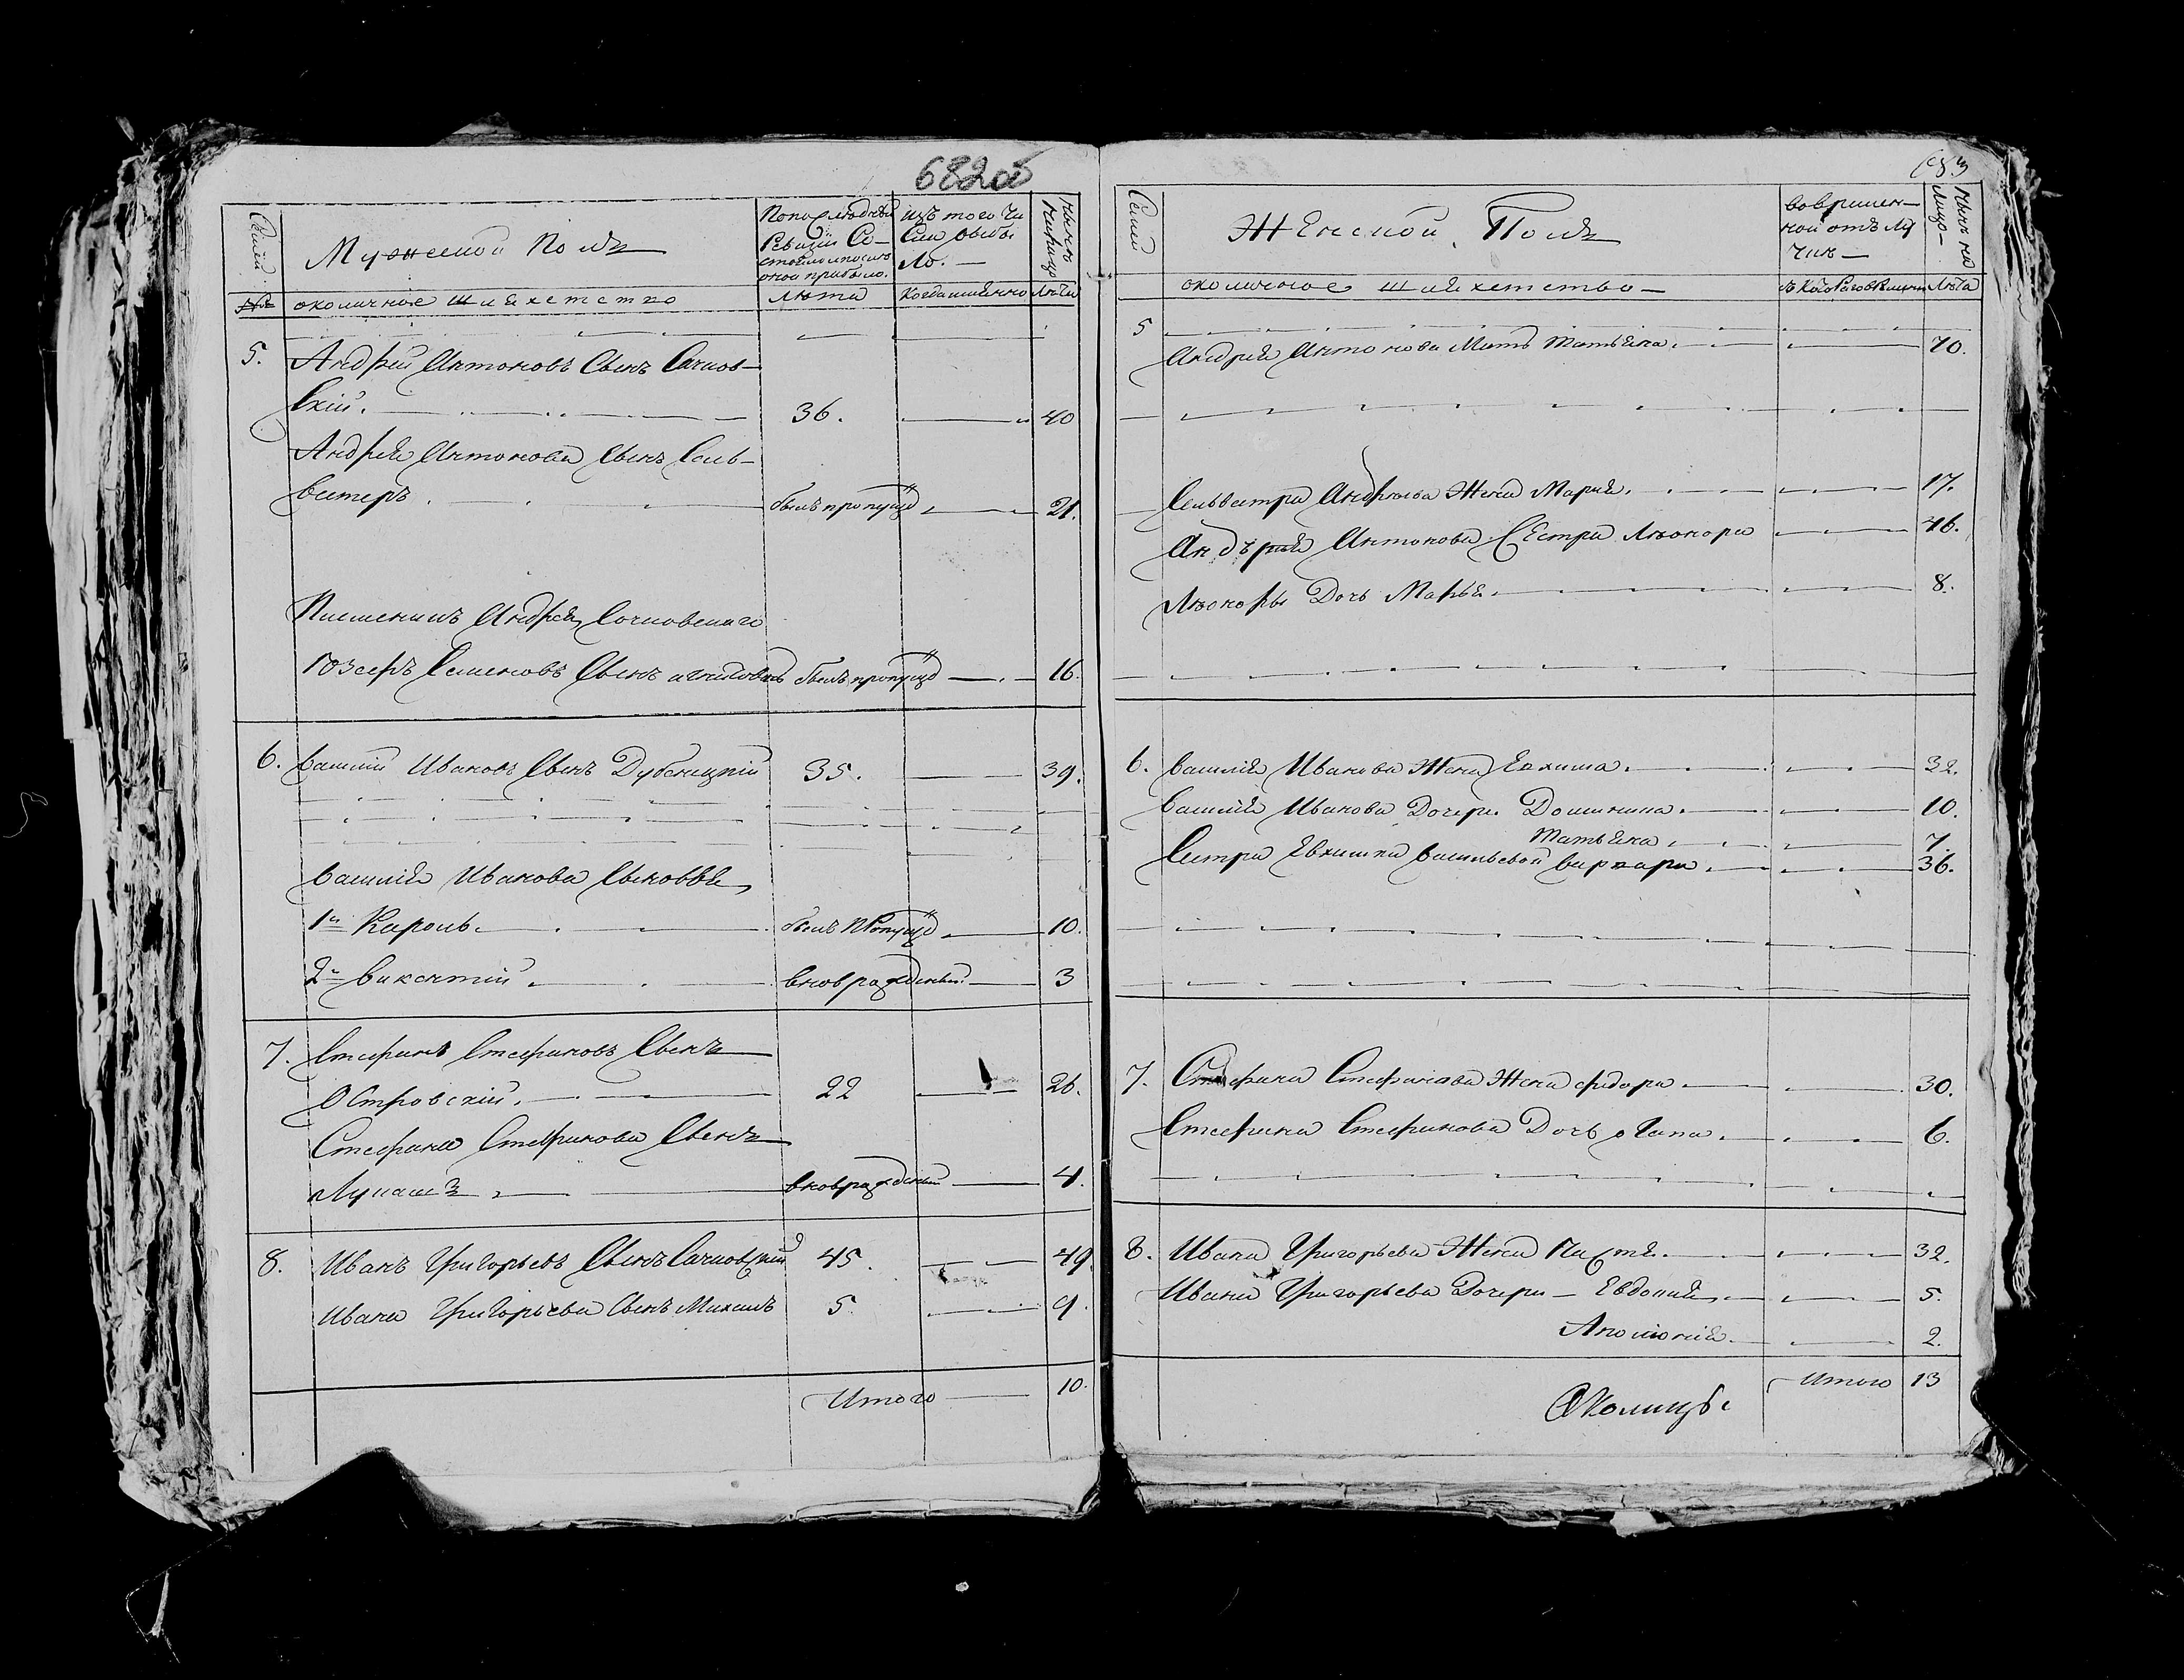 682об
Семей
Мужеской Полъ
По последней
Ревизіи Со-
стояло и после
оной прибыло.
изъ того Чи
Сла выбы
ло. —
ныне на лицо
№
околичное шляхетство
лета
Когда именно
Лета
5. Андрей Антоновъ Сынъ Сачков-
скій. 36. 40
Андрея Антонова Сынъ Силь-
вестеръ. былъ пропущ 21.
Племеникъ Андрея Сочковскаго
Юзефъ Семеновъ Сынъ былъ пропущ 16.
6. Василій Ивановъ Сынъ Дубеицкій 35. 39.
Василія Иванова Сыновья
1й Кароль. былъ пропущ 10.
2й Викентій вноврожденный 3
7. Стефанъ Стефановъ Сынъ
Островскій. 22 26.
Стефана Стефанова Сынъ
Лукашъ вноврожденный 4.
8. Иванъ Григорьевъ Сынъ Сачковскій 45. 49.
Ивана Григорьева Сынъ Михаилъ 5 9.
Итого 10.
683
Семей
Женской Полъ
Во времен-
ной отлу
чке —
Ныне на Лицо —
околичное шляхетство —
Лета
5
Андрея Антонова Мать Татьяна. 70.
Сельвестра Андреева Жена Марія. 17.
Андрея Антонова Сестра Люкора 46.
Люкоры Дочь Марья. 8.
6. Василія Иванова Жена Евхима. 32.
Василія Иванова Дочери Домикика. 10.
Татьяна. 7.
Сестра Евхимы Васильевой Варвара. 36.
7. Стефана Стефанова Жена Федора 30.
Стефана Стефанова Дочь Агапа. 6.
8. Ивана Григорьева Жена Настя. 32.
Ивана Григорьева Дочери — Евдокия 5.
Аполонія. 2.
Итого 13